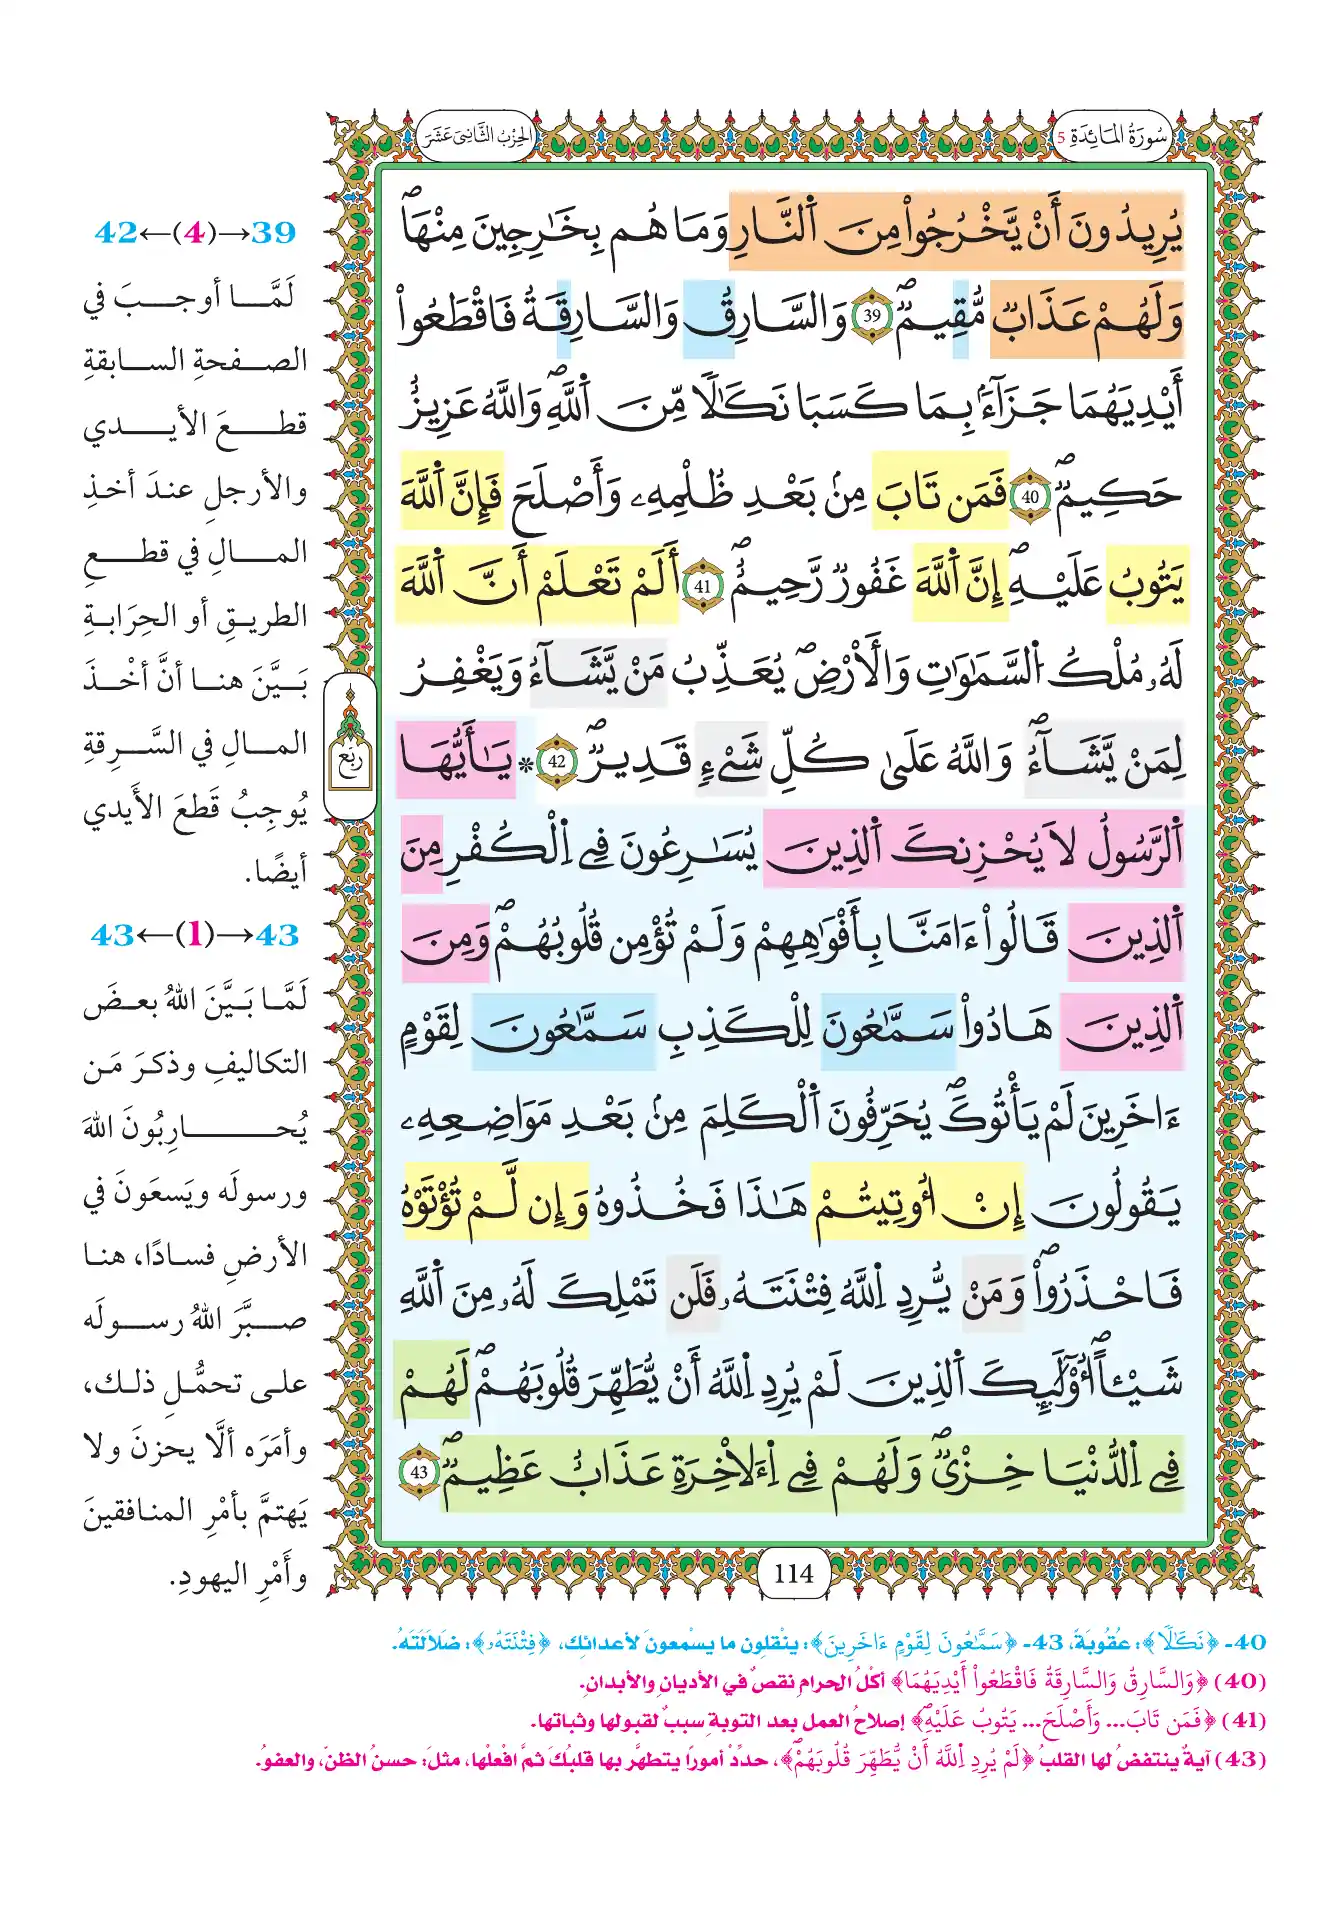 سُورَةُ المَائِدَةِ 5
الحِزْبُ الثَّانِي عَشَرَ
يُرِيدُونَ أَنْ يَّخْرُجُواْ مِنَ اَ۬لنَّارِ وَمَا هُم بِخَٰرِجِينَ مِنْهَاۖ
وَلَهُمْ عَذَابٞ مُّقِيمٞۖ 39 وَالسَّارِقُ وَالسَّارِقَةُ فَاقْطَعُواْ
أَيْدِيَهُمَا جَزَآءَۢ بِمَا كَسَبَا نَكَٰلاٗ مِّنَ اَ۬للَّهِۖ وَاللَّهُ عَزِيزٌ
حَكِيمٞۖ 40 فَمَن تَابَ مِنۢ بَعْدِ ظُلْمِهِۦ وَأَصْلَحَ فَإِنَّ اَ۬للَّهَ
يَتُوبُ عَلَيْهِۖ إِنَّ اَ۬للَّهَ غَفُورٞ رَّحِيمٌۖ 41 أَلَمْ تَعْلَمْ أَنَّ اَ۬للَّهَ
لَهُۥ مُلْكُ اُ۬لسَّمَٰوَٰتِ وَالَارْضِۖ يُعَذِّبُ مَنْ يَّشَآءُ وَيَغْفِرُ
لِمَنْ يَّشَآءُۖ وَاللَّهُ عَلَىٰ كُلِّ شَےْءٖ قَدِيرٞۖ 42 * يَٰٓأَيُّهَا
اَ۬لرَّسُولُ لَا يُحْزِنكَ اَ۬لذِينَ يُسَٰرِعُونَ فِے اِ۬لْكُفْرِ مِنَ
اَ۬لذِينَ قَالُواْ ءَامَنَّا بِأَفْوَٰهِهِمْ وَلَمْ تُؤْمِن قُلُوبُهُمْۖ وَمِنَ
اَ۬لذِينَ هَادُواْ سَمَّٰعُونَ لِلْكَذِبِ سَمَّٰعُونَ لِقَوْمٍ
ءَاخَرِينَ لَمْ يَأْتُوكَۖ يُحَرِّفُونَ اَ۬لْكَلِمَ مِنۢ بَعْدِ مَوَاضِعِهِۦ
يَقُولُونَ إِنُ ا۟وتِيتُمْ هَٰذَا فَخُذُوهُ وَإِن لَّمْ تُؤْتَوْهُ
فَاحْذَرُواْۖ وَمَنْ يُّرِدِ اِ۬للَّهُ فِتْنَتَهُۥ فَلَن تَمْلِكَ لَهُۥ مِنَ اَ۬للَّهِ
شَيْـٔاًۖ ا۟وْلَٰٓئِكَ اَ۬لذِينَ لَمْ يُرِدِ اِ۬للَّهُ أَنْ يُّطَهِّرَ قُلُوبَهُمْۖ لَهُمْ
فِے اِ۬لدُّنْيَا خِزْيٞۖ وَلَهُمْ فِے اِ۬لَاخِرَةِ عَذَابٌ عَظِيمٞۖ 43
ربع
114
39→(4)←42
لَمَّا أوجبَ في
الصفحةِ السابقةِ
قطعَ الأيدي
والأرجلِ عندَ أخذِ
المالِ في قطعِ
الطريقِ أو الحِرَابةِ
بَيَّنَ هنا أنَّ أخْذَ
المالِ في السَّرِقةِ
يُوجِبُ قَطعَ الأَيدي
أيضًا.
43→(1)←43
لَمَّا بَيَّنَ اللهُ بعضَ
التكاليفِ وذكرَ مَن
يُحارِبُونَ اللهَ
ورسولَه ويَسعَونَ في
الأرضِ فسادًا، هنا
صبَّرَ اللهُ رسولَه
على تحمُّلِ ذلك،
وأمَرَه ألَّا يحزنَ ولا
يَهتمَّ بأمْرِ المنافقينَ
وأَمْرِ اليهودِ.
40- ﴿نَكَٰلاٗ﴾: عُقُوبَةً، 43- ﴿سَمَّٰعُونَ لِقَوْمٍ ءَاخَرِينَ﴾: ينْقلِون ما يسْمعونَ لأعدائِك، ﴿فِتْنَتَهُۥ﴾: ضَلَالَتَهُ.
(40) ﴿وَالسَّارِقُ وَالسَّارِقَةُ فَاقْطَعُواْ أَيْدِيَهُمَا﴾ أكْلُ الحرامِ نقصٌ في الأديانِ والأبدانِ.
(41) ﴿فَمَن تَابَ... وَأَصْلَحَ... يَتُوبُ عَلَيْهِۖ﴾ إصلاحُ العملِ بعد التوبةِ سببٌ لقبولها وثباتها.
(43) آيةٌ ينتفضُ لها القلبُ ﴿لَمْ يُرِدِ اِ۬للَّهُ أَنْ يُّطَهِّرَ قُلُوبَهُمْۖ﴾، حدِّدْ أمورًا يتطهَّر بها قلبُكَ ثمَّ افعلْها، مثلَ: حسنُ الظنّ، والعفوُ.